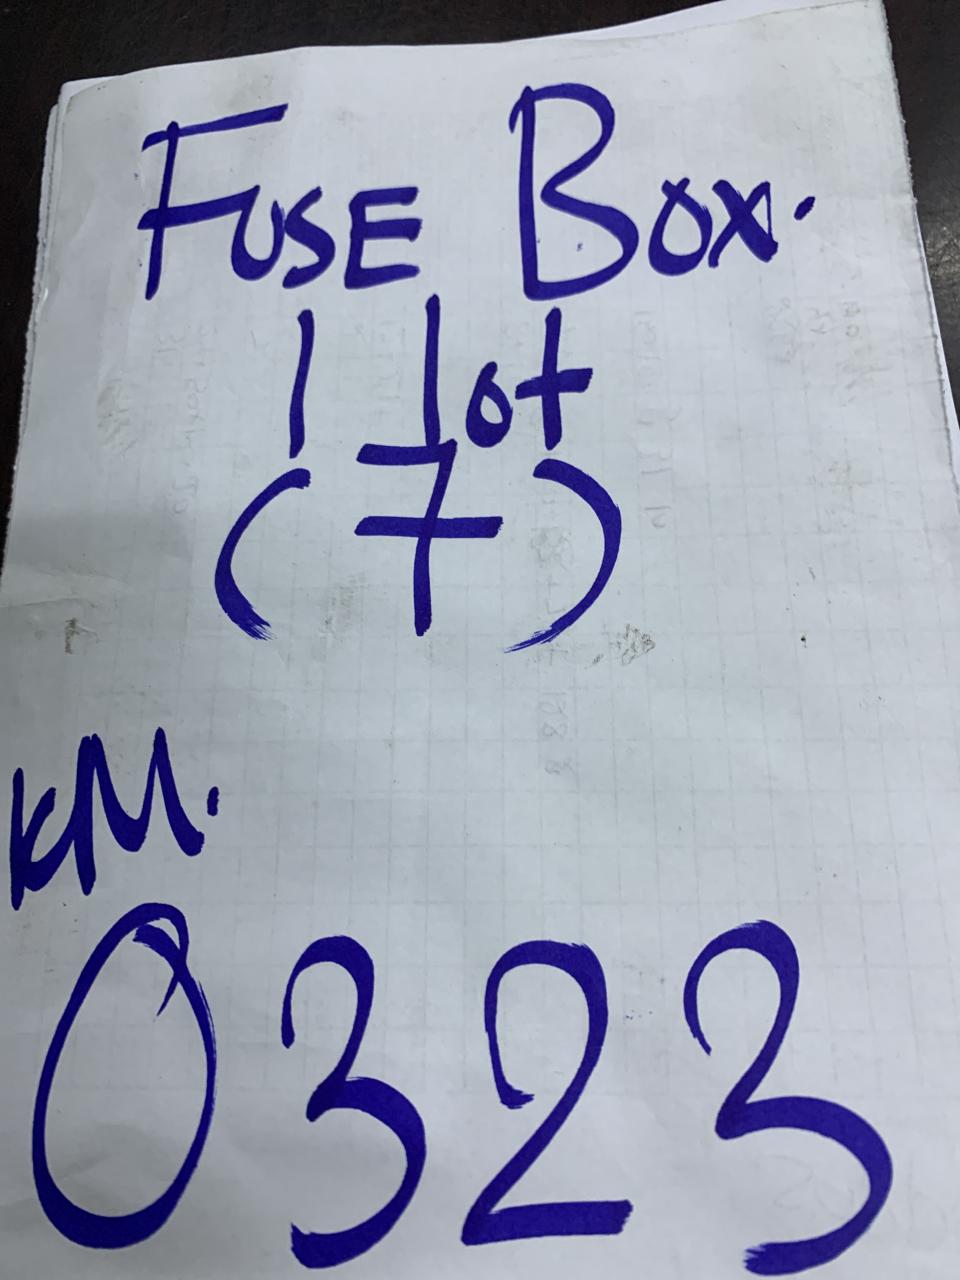 FUSE BOX.
1 lot
(7)
KM.
0323